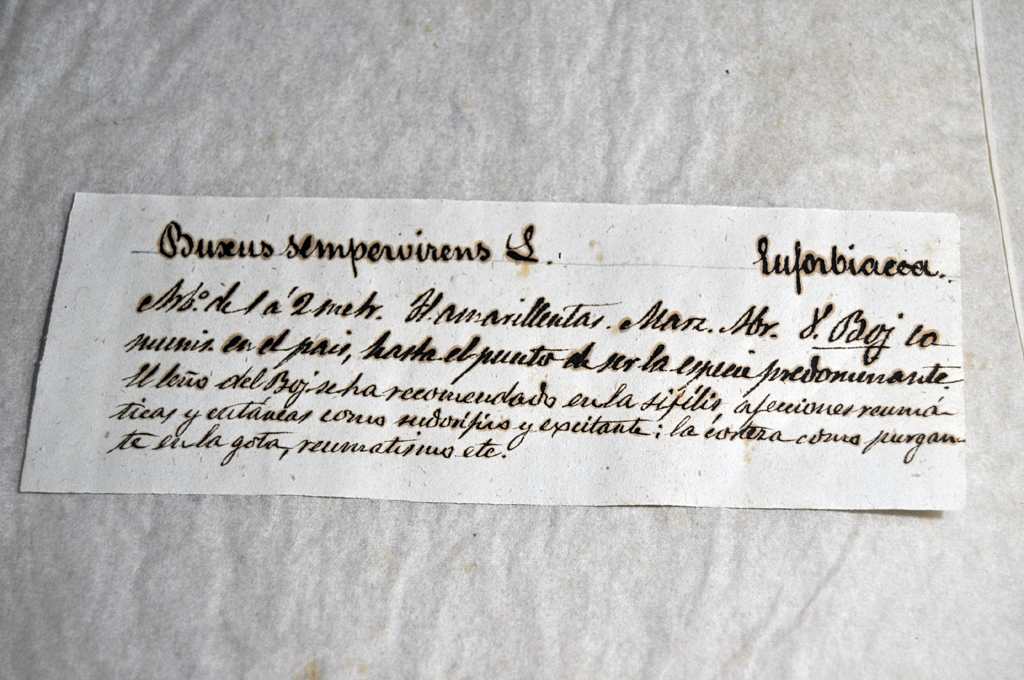 Buxus sempervirens L. Euforbiacea.
Arb.º de 1 á 2 metr. Fl. amarillentas. Marz. Abr. V. Boj co
munis. en el pais, hasta el punto de ser la especie predominante
El leño del Boj se ha recomendado en la sifilis, afecciones reumá-
ticas y cutáneas como sudorífico y excitante; la corteza como purgan-
te en la gota, reumatismo etc.